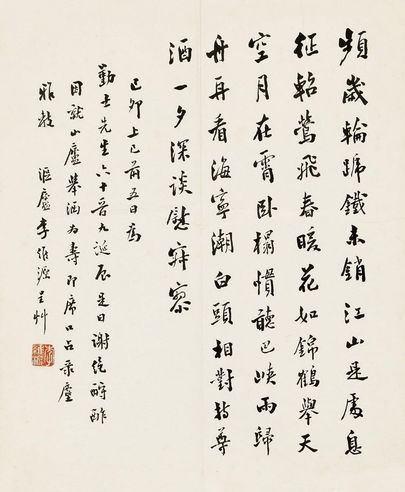 頻歲輪蹄鐵未銷江山是處息
征軺鶯飛春暖花如錦鶴舉天
空月在霄臥榻慣聽巴峽雨歸
舟再看海寧潮白頭相對持尊
酒一夕深談慰寂寥
己卯上巳前五日為
勤士先生六十晉九誕辰是日謝絕酬酢
因就山廬舉酒為壽即席口占录塵
雅教 漚廬李 源呈艸